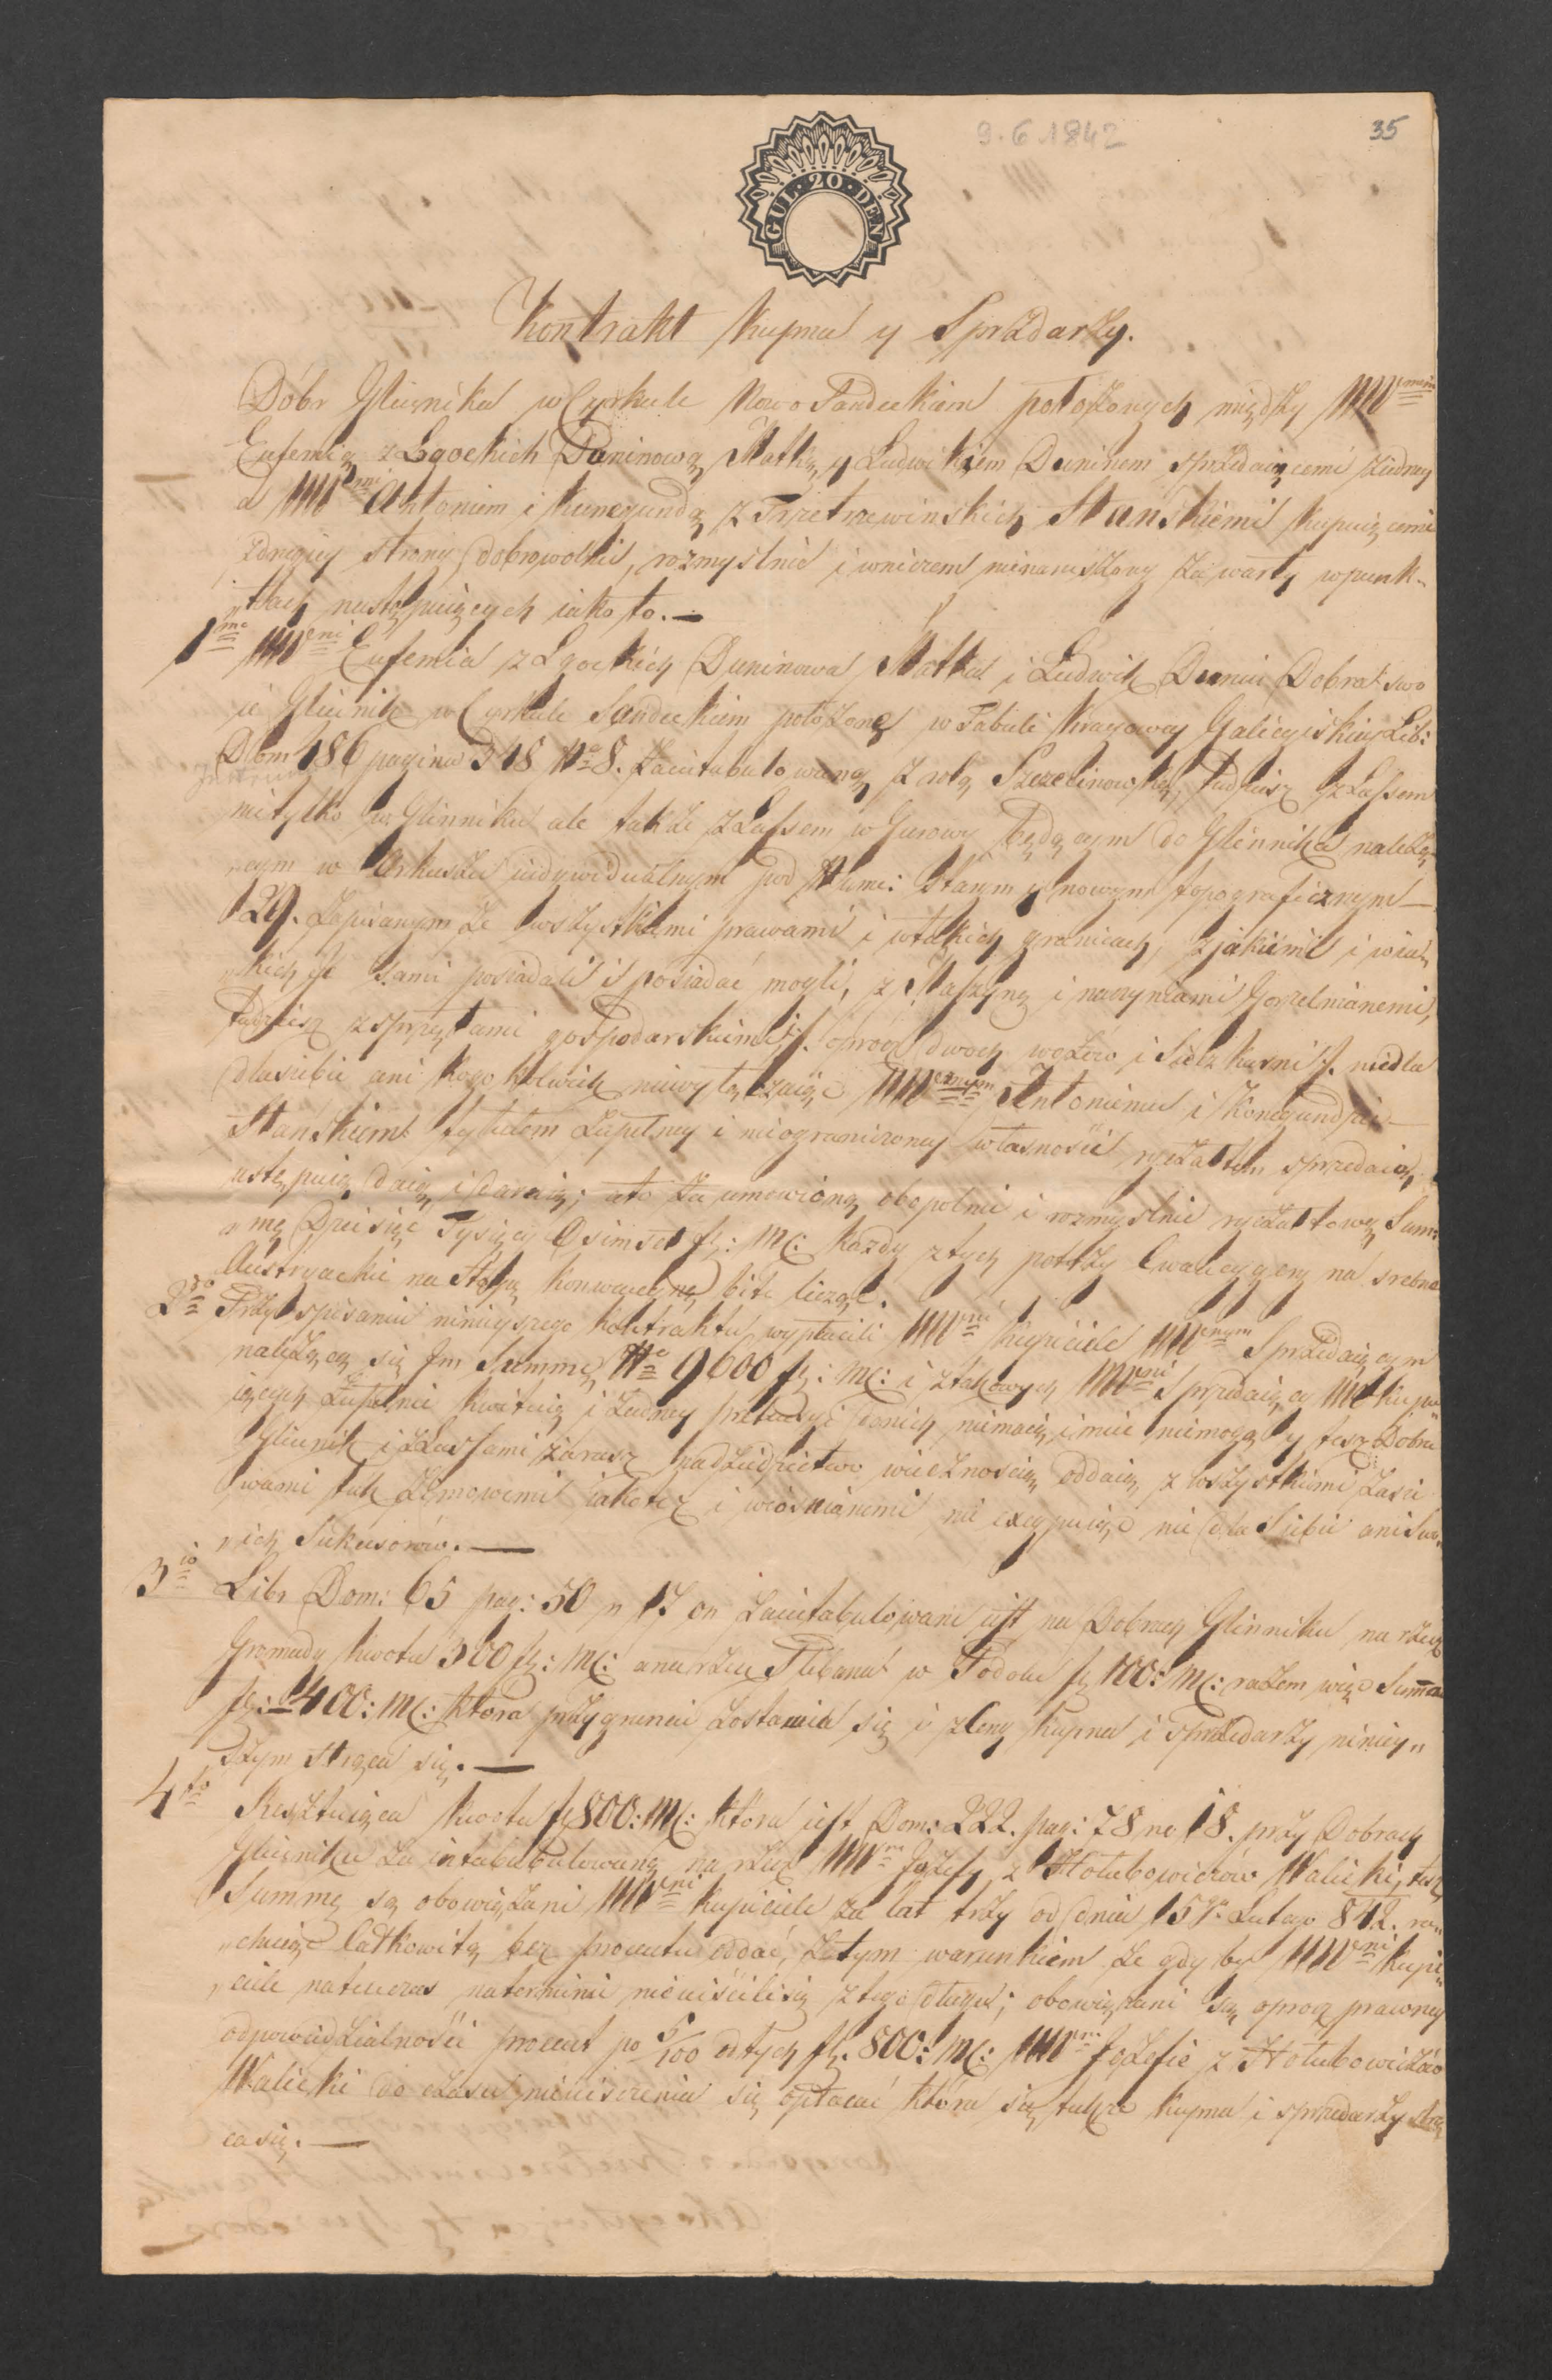 9.6.1842
35
GUL · 20 · DEN
Kontrakt Kupna y Sprzedarzy.
Dóbr Gliẏnika w Cyrkule Nowo Sandeckiem położonych między WW
Eufemią z Łgockich Duninową Matką y Ludwikiem Duninem sprzedaiącemi z iedney
a WW Antonim i Kunegundą z Trzetrzewinskich Stanskiemi kupuiącemi
z drugiey strony dobrowolnie, rozmyslnie i w niczem nienaruszony zawarty w punk-
„tach następuiących iako to. —
1mo WWni Eufemia z Łgockich Duninowa Matka i Ludwik Dunin Dobra swo
ie Glinik w Cyrkule Sandeckim położone w Tabuli Kraiowey Galicyiskiey Lib:
Dom 186 pagina 318 No 8. zaintabulowane z rolą tudziesz z Lassem
nietylko w Glinniku ale także z Lassem w Gurowy będącym do Glinnika należą-
cym w Arkuszu indywidualnym pod Nume: Starym y nowym topograficznym —
129. Zapisanym ze wszystkiemi prawami i w takich granicach, z jakiemi i w iak
„kich ie sami posiadali i posiadać mogli, z Maszyną i naczyniami Gorzelnianemi,
tudziesz z sprzętami gospodarskiemi oprócz dwoch wozów i nic dla
dlasiebie ani kogokolwiek niewyłączaiąc WW Antoniemu i Konegundzie
Stańskiem tytułem zupełney i nieograniczoney własności ryczałtem sprzedaią,
ustępuią daią i daruią; a to za umowioną obopolnie i rozmyslnie ryczałtową Sum-
„mę Dziesięć Tysięcy Osimset fl: MC: każdy z tych po trzy Cwancygery na srebne
Austryackie na Stopę konwencyiną bite licząc.
2do Przy spisaniu ninieyszego kontraktu wypłacili WWni kupiciele WW Sprzedaiącym
należącą się Im Summę No 9600 fl: MC: i z takowych WWni Sprzedaiący WW kupu
iących zupełnie kwituią i żadney pretensyi do nich niemaią, i mieć niemogą y tesz Dobra
Glinnik i z Lassami zarasz na dziedzictwo wiecznoscią oddaią z wszystkiemi zasie
wami tak zimowemi iakotez i wiosnianemi nic excypuiąc nie dla Siebie ani Swo„
„ich Sukcesorów. —
3io Libr Dom: 65 pag: 50 n 17 on zaintabulowane iest na Dobrach Glinniku na rzecz
Gromady kwota 300 fl: MC: a na rzecz Plibana w Podolu fl 100: MC: razem więc Summa
fl: 400: MC: ktora przy gruncie zostawia się i z Ceny kupna i sprzedarzy niniey„
szym strąca się. —
4to Resztuiąca kwota fl 800: MC: która iest Dom: 222. pag: 78 no 18. przy Dobrach
Glinniku zaintabubulowaną na rzecz WW Jozefy z Hołubowiczów Walicki, tesz
Summę są obowiązani WWni kupiciele za lat trzy od dnia 15go Lutego 842. ra„
„chuiąc Całkowitą bez procentu oddać, z tym warunkiem że gdyby WWni kupi„
„ciele natenczas na terminie nieuiścilisię z tego długu; obowiązani są oprocz prawney
odpowiedzialności procent po 5/100 od tych fl. 800: MC: WW Jozefie z Hołubowiczów
Walicki do czasu nieuiszczenia się opłacać która się także kupna i sprzedarzy strą
ca się. —